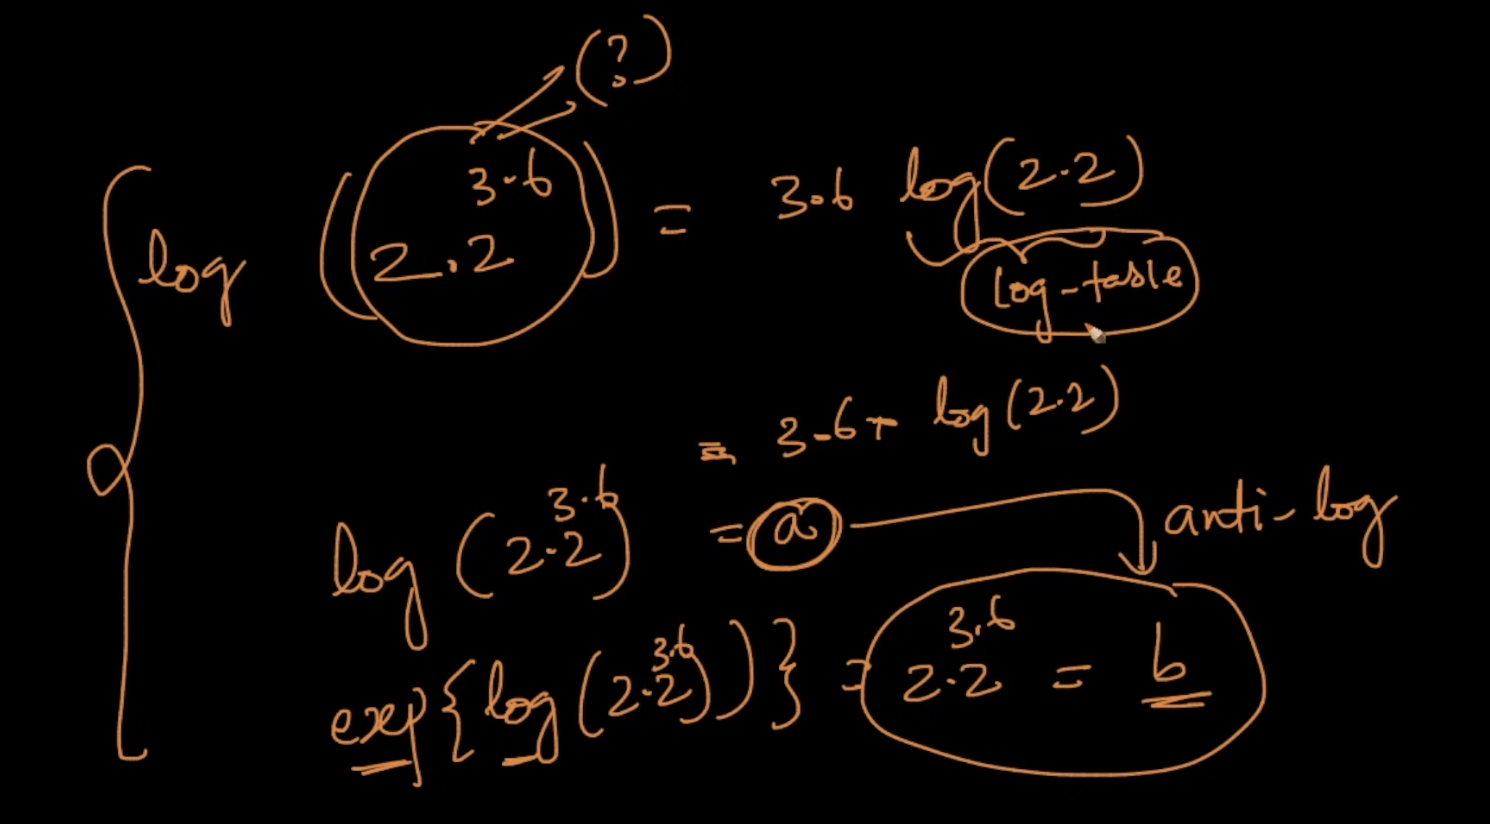 (?)
log (2.2^3.6) = 3.6 log(2.2)
log-table
= 3.6 × log(2.2)
log (2.2^3.6) = a
anti-log
exp{log(2.2^3.6))} = 2.2^3.6 = b